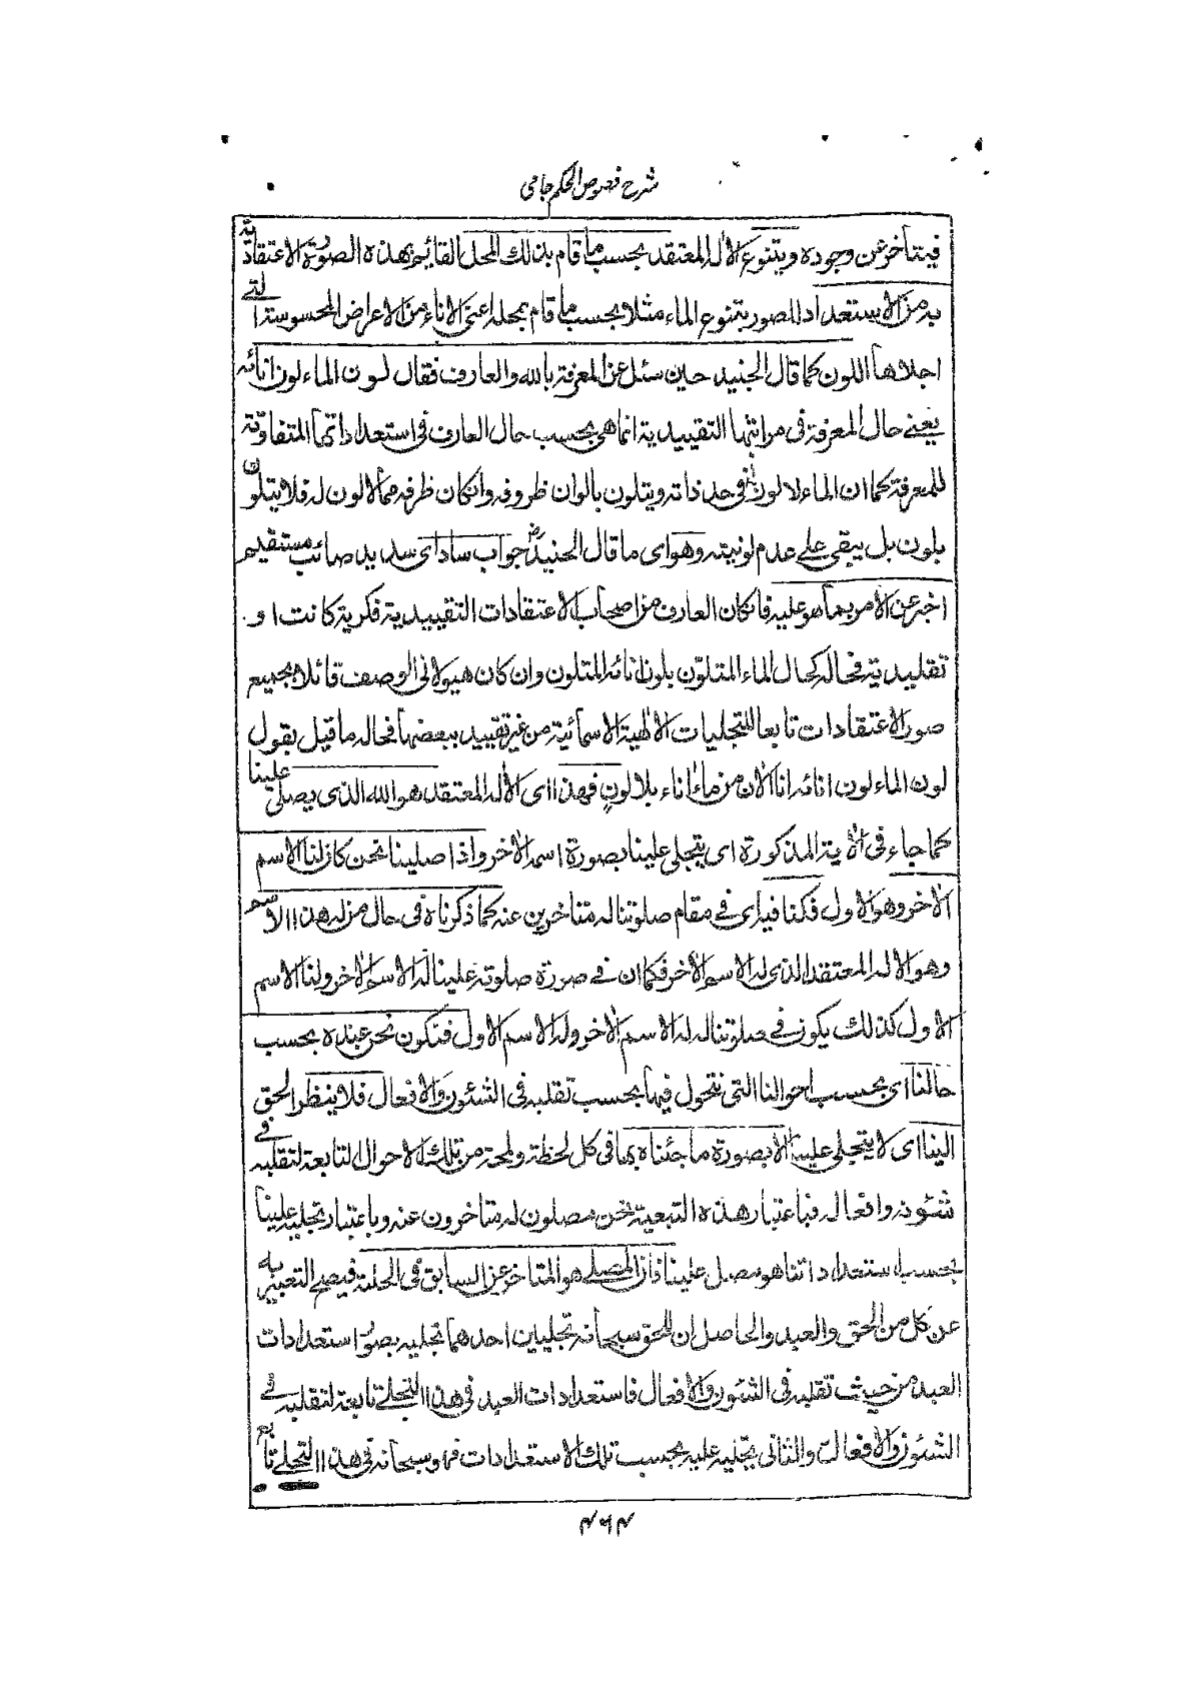 شرح فصوص الحکم جامی
فيتأخر عن وجوده ويتنوع الاله المعتقد بحسب ما قام بذلك المحل القائم بهذه الصورة الاعتقادية
به من الاستعداد المصور بتنوع الماء مثلا بحسب ما قام بمحله اعنى الاناء من الاعراض المحسوسة التے
اجلاها اللون كما قال الجنيد حين سئل عن المعرفة بالله والعارف فقال لون الماء لون انائه
يعنے حال المعرفة فى مراتبها التقييدية انما هى بحسب حال العارف فى استعداداتها المتفاوتة
للمعرفة كما ان الماء لا لون له فى حد ذاته ويتلون بالوان ظروفه وان كان ظرفه مما لا لون له فلا يتلون
بلون بل يبقى على عدم لونيته وهو اى ما قال الجنيد رض جواب ساد اى سديد صائب مستقيم
اخبر عن الامر بما هو عليه فان كان العارف من اصحاب الاعتقادات التقييدية فكرية كانت او
تقليدية فحاله كحال الماء المتلون بلون انائه المتلون وان كان هيولانى الوصف قائلا بجميع
صور الاعتقادات تابعا للتجليات الالهية الاسمائية من غير تقييد ببعضها فحاله ما قيل بقول
لون الماء لون انائه انا الان من ماء اناء بلا لون فهذا اى الاله المعتقد هو الله الذى يصلى علينا
كما جاء فى الاية المذكورة اى يتجلى علينا بصورة اسمه الاخر واذا صلينا نحن كان لنا الاسم
الاخر وهو الاول فكنا فيه اى فے مقام صلوتنا له متاخرين عنه كما ذكرناه فى حال من له هذا الاسم
وهو الاله المعتقد الذى له الاسم الاخر فكما ان فے صورة صلوته علينا له الاسم الاخر ولنا الاسم
الاول كذلك يكون فے صلوتنا له لنا الاسم الاخر وله الاسم الاول فنكون نحن عنده بحسب
حالنا اى بحسب احوالنا التى نتحول فيها بحسب تقلبه فى الشئون والافعال فلا ينظر الحق
الينا اى لا يتجلى علينا الا بصورة ما جئناه بها فى كل لحظة ولمحة من تلك الاحوال التابعة لتقلبه فے
شئونه وافعاله فباعتبار هذه التبعية نحن مصلون له متاخرون عنه وباعتبار تجليه علينا
بحسب استعداداتنا هو مصل علينا فان المصلے هو المتاخر عن السابق فى الحلبة فيصح التعبير به
عن كل من الحق والعبد والحاصل ان للحق سبحانه تجليين احدهما تجليه بصور استعدادات
العبد من حيث تقلبه فى الشئون والافعال فاستعدادات العبد فى هذا التجلے تابعة لتقلبه فے
الشئون والافعال والثانى تجليه عليه بحسب تلك الاستعدادات فهو سبحانه فى هذا التجلے تابع
۴۶۴